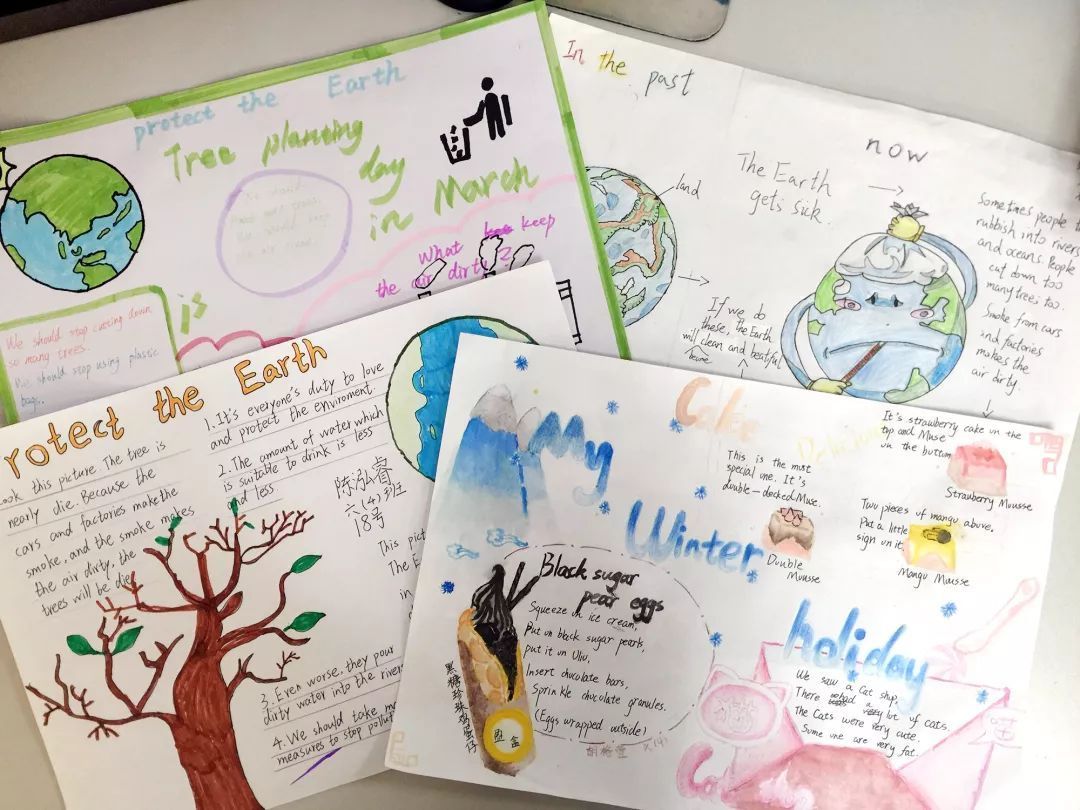 protect the Earth
Tree planting
day
in March
is
What keep
the air dirty?
We should stop cutting down
so many trees.
We should stop using plastic
bags.
In the past
land
now
The Earth
gets sick.
If we do
these, the Earth
will clean and beatiful
Sometimes people
rubbish into rivers
and oceans. People
cut down too
many trees too.
Smoke from cars
and factories
makes the
air dirty.
rotect the Earth
Look this picture. The tree is
nearly die. Because the
cars and factories make the
smoke, and the smoke makes
the air dirty, the
trees will be die
1. It's everyone's duty to love
and protect the enviroment.
2. The amount of water which
is suitable to drink is less
and less.
陈泓睿
六(4)班
18号
This pict
The E
in
3. Even worse, they pour
dirty water into the rivers
4. We should take
measures to stop pollut
My
Winter
holiday
Cake
This is the most
special one. It's
double-decked Muse.
Double
Muusse
It's strawberry cake on the
top and Muse
on the buttom
Strawberry Muusse
Two pieces of mangu above.
Put a little
sign on it.
Mangu Muusse
Black sugar
pear eggs
Squeeze on ice cream,
Put on black sugar pearls,
put it on Uliu,
Insert chocolate bars,
Sprinkle chocolate granules.
(Eggs wrapped outside)
黑糖珍珠鸡蛋仔
We saw a Cat shop.
There a lot of cats.
The Cats were very cute.
Some one are very fat.